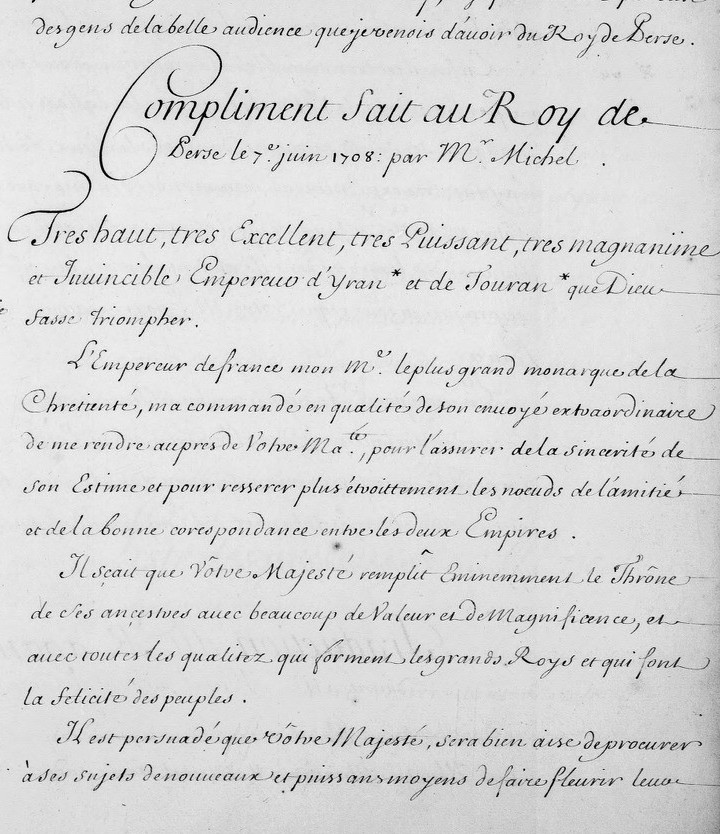 des gens de la belle audience que je venois d'avoir du Roy de Perse.
Compliment fait au Roy de
Perse le 7.e juin 1708: par Mr. Michel.
Tres haut, tres Excellent, tres Puissant, tres magnanime
et Invincible Empereur d'Yran* et de Touran* que Dieu
fasse triompher.
L'Empereur de france mon Me. le plus grand monarque de la
Chretienté, ma commandé en qualité de son envoyé extraordinaire
de me rendre aupres de Votre Ma.té, pour l'assurer de la sincerité de
son Estime et pour resserer plus étroittement les nœuds de l'amitié
et de la bonne corespondance entre les deux Empires.
Il sçait que Vôtre Majesté remplit Eminemment le Thrône
de ses ancestres avec beaucoup de Valeur et de Magnificence, et
avec toutes les qualitez qui forment les grands Roys et qui font
la felicité des peuples.
Il est persuadé que vôtre Majesté, sera bien aise de procurer
à ses sujets de nouveaux et puissans moyens de faire fleurir leur